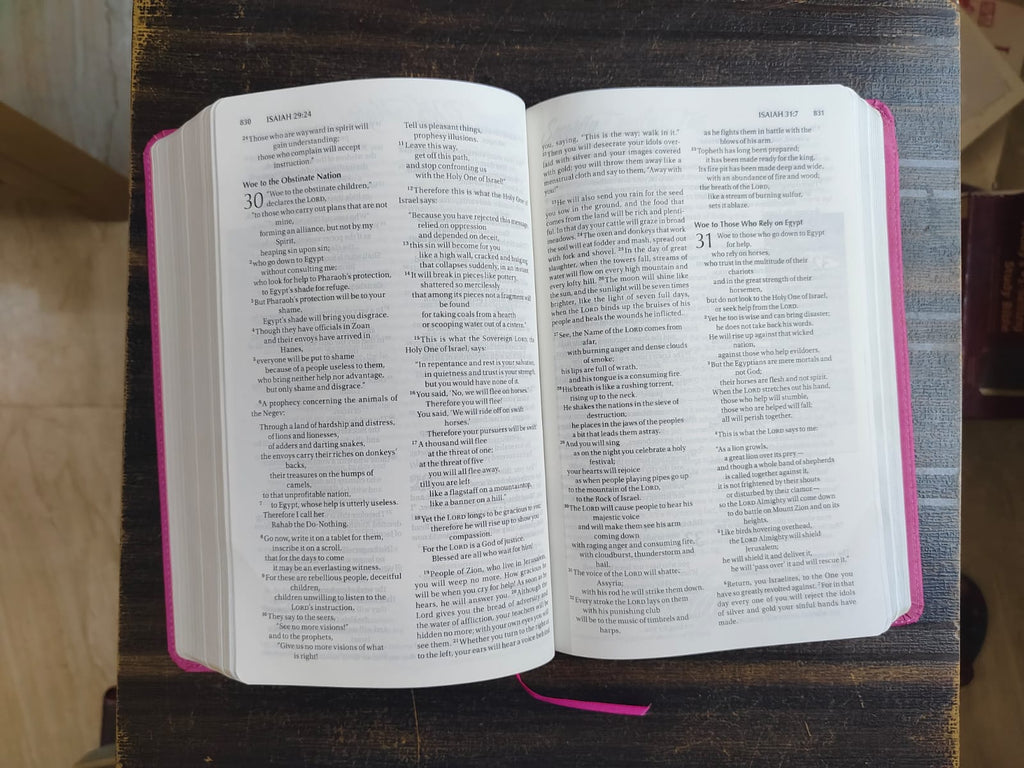 830 ISAIAH 29:24
24Those who are wayward in spirit will
gain understanding;
those who complain will accept
instruction."
Woe to the Obstinate Nation
30 "Woe to the obstinate children,"
declares the LORD,
"to those who carry out plans that are not
mine,
forming an alliance, but not by my
Spirit,
heaping sin upon sin;
2who go down to Egypt
without consulting me;
who look for help to Pharaoh's protection,
to Egypt's shade for refuge.
3But Pharaoh's protection will be to your
shame,
Egypt's shade will bring you disgrace.
4Though they have officials in Zoan
and their envoys have arrived in
Hanes,
5everyone will be put to shame
because of a people useless to them,
who bring neither help nor advantage,
but only shame and disgrace."
6A prophecy concerning the animals of
the Negev:
Through a land of hardship and distress,
of lions and lionesses,
of adders and darting snakes,
the envoys carry their riches on donkeys'
backs,
their treasures on the humps of
camels,
to that unprofitable nation,
7to Egypt, whose help is utterly useless.
Therefore I call her
Rahab the Do-Nothing.
8Go now, write it on a tablet for them,
inscribe it on a scroll,
that for the days to come
it may be an everlasting witness.
9For these are rebellious people, deceitful
children,
children unwilling to listen to the
LORD's instruction.
10They say to the seers,
"See no more visions!"
and to the prophets,
"Give us no more visions of what
is right!
Tell us pleasant things,
prophesy illusions.
11Leave this way,
get off this path,
and stop confronting us
with the Holy One of Israel!"
12Therefore this is what the Holy One of
Israel says:
"Because you have rejected this message,
relied on oppression
and depended on deceit,
13this sin will become for you
like a high wall, cracked and bulging,
that collapses suddenly, in an instant.
14It will break in pieces like pottery,
shattered so mercilessly
that among its pieces not a fragment will
be found
for taking coals from a hearth
or scooping water out of a cistern."
15This is what the Sovereign LORD, the
Holy One of Israel, says:
"In repentance and rest is your salvation,
in quietness and trust is your strength,
but you would have none of it.
16You said, 'No, we will flee on horses.'
Therefore you will flee!
You said, 'We will ride off on swift
horses.'
Therefore your pursuers will be swift!
17A thousand will flee
at the threat of one;
at the threat of five
you will all flee away,
till you are left
like a flagstaff on a mountaintop,
like a banner on a hill."
18Yet the LORD longs to be gracious to you;
therefore he will rise up to show you
compassion.
For the LORD is a God of justice.
Blessed are all who wait for him!
19People of Zion, who live in Jerusalem,
you will weep no more. How gracious he
will be when you cry for help! As soon as he
hears, he will answer you. 20Although the
Lord gives you the bread of adversity and
the water of affliction, your teachers will be
hidden no more; with your own eyes you will
see them. 21Whether you turn to the right or
to the left, your ears will hear a voice behind
ISAIAH 31:7 831
you, saying, "This is the way; walk in it."
22Then you will desecrate your idols over-
laid with silver and your images covered
with gold; you will throw them away like a
menstrual cloth and say to them, "Away with
you!"
23He will also send you rain for the seed
you sow in the ground, and the food that
comes from the land will be rich and plenti-
ful. In that day your cattle will graze in broad
meadows. 24The oxen and donkeys that work
the soil will eat fodder and mash, spread out
with fork and shovel. 25In the day of great
slaughter, when the towers fall, streams of
water will flow on every high mountain and
every lofty hill. 26The moon will shine like
the sun, and the sunlight will be seven times
brighter, like the light of seven full days,
when the LORD binds up the bruises of his
people and heals the wounds he inflicted.
27See, the Name of the LORD comes from
afar,
with burning anger and dense clouds
of smoke;
his lips are full of wrath,
and his tongue is a consuming fire.
28His breath is like a rushing torrent,
rising up to the neck.
He shakes the nations in the sieve of
destruction;
he places in the jaws of the peoples
a bit that leads them astray.
29And you will sing
as on the night you celebrate a holy
festival;
your hearts will rejoice
as when people playing pipes go up
to the mountain of the LORD,
to the Rock of Israel.
30The LORD will cause people to hear his
majestic voice
and will make them see his arm
coming down
with raging anger and consuming fire,
with cloudburst, thunderstorm and
hail.
31The voice of the LORD will shatter
Assyria;
with his rod he will strike them down.
32Every stroke the LORD lays on them
with his punishing club
will be to the music of timbrels and
harps,
as he fights them in battle with the
blows of his arm.
33Topheth has long been prepared;
it has been made ready for the king.
Its fire pit has been made deep and wide,
with an abundance of fire and wood;
the breath of the LORD,
like a stream of burning sulfur,
sets it ablaze.
Woe to Those Who Rely on Egypt
31 Woe to those who go down to Egypt
for help,
who rely on horses,
who trust in the multitude of their
chariots
and in the great strength of their
horsemen,
but do not look to the Holy One of Israel,
or seek help from the LORD.
2Yet he too is wise and can bring disaster;
he does not take back his words.
He will rise up against that wicked
nation,
against those who help evildoers.
3But the Egyptians are mere mortals and
not God;
their horses are flesh and not spirit.
When the LORD stretches out his hand,
those who help will stumble,
those who are helped will fall;
all will perish together.
4This is what the LORD says to me:
"As a lion growls,
a great lion over its prey—
and though a whole band of shepherds
is called together against it,
it is not frightened by their shouts
or disturbed by their clamor—
so the LORD Almighty will come down
to do battle on Mount Zion and on its
heights.
5Like birds hovering overhead,
the LORD Almighty will shield
Jerusalem;
he will shield it and deliver it,
he will 'pass over' it and will rescue it."
6Return, you Israelites, to the One you
have so greatly revolted against. 7For in that
day every one of you will reject the idols
of silver and gold your sinful hands have
made.